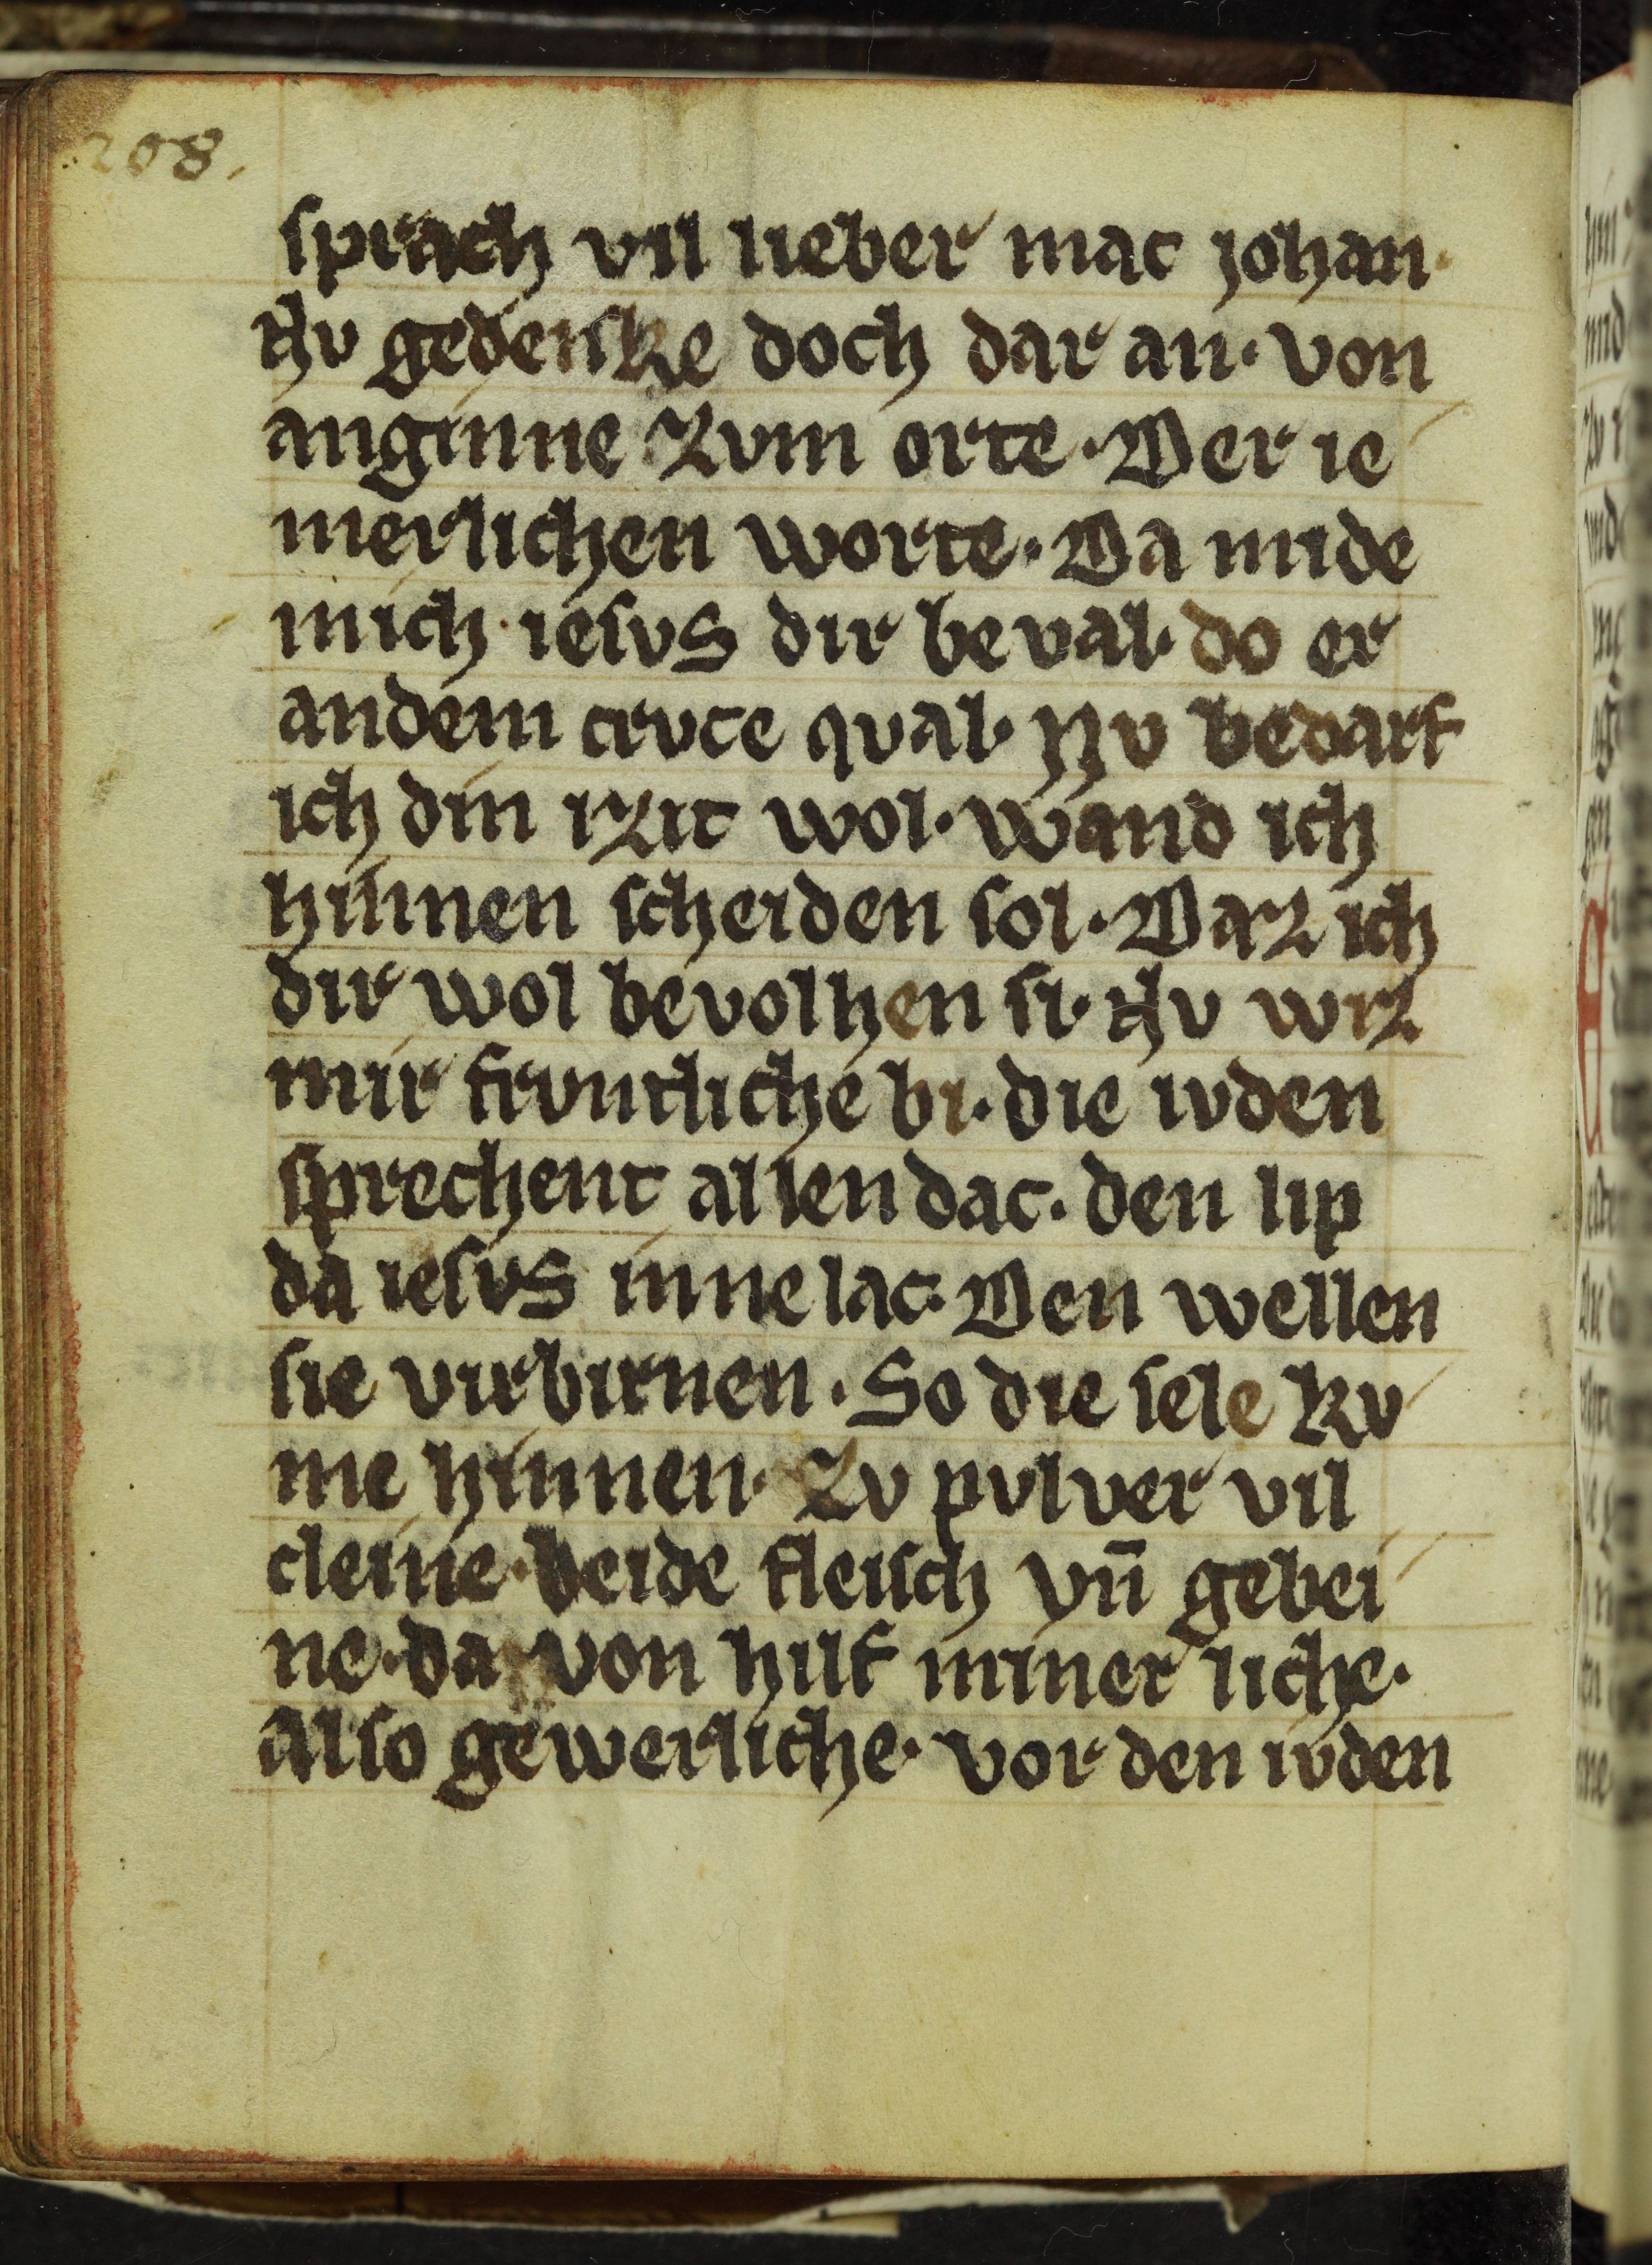 208.
sprach vil lieber mac johan·
Nv gedenke doch dar an· von
anginne zvm orte· Der ie
merlichen worte· Da mide
mich· iesvs dir beval· do er
andem crvce qval· Nv bedarf
ich din izit wol· wand ich
hinnen scheiden sol· Daz ich
dir wol bevolhen si· Nv wiz
mir frvntliche bi· die ivden
sprechent allen dac· den lip
da iesvs inne lac· Den wellen
sie virbirnen· So die sele kv
me hinnen· Zv pvlver vil
cleine· beide fleisch vn̄ gebei
ne· da von hilf miner liche·
Also gewerliche· vor den ivden